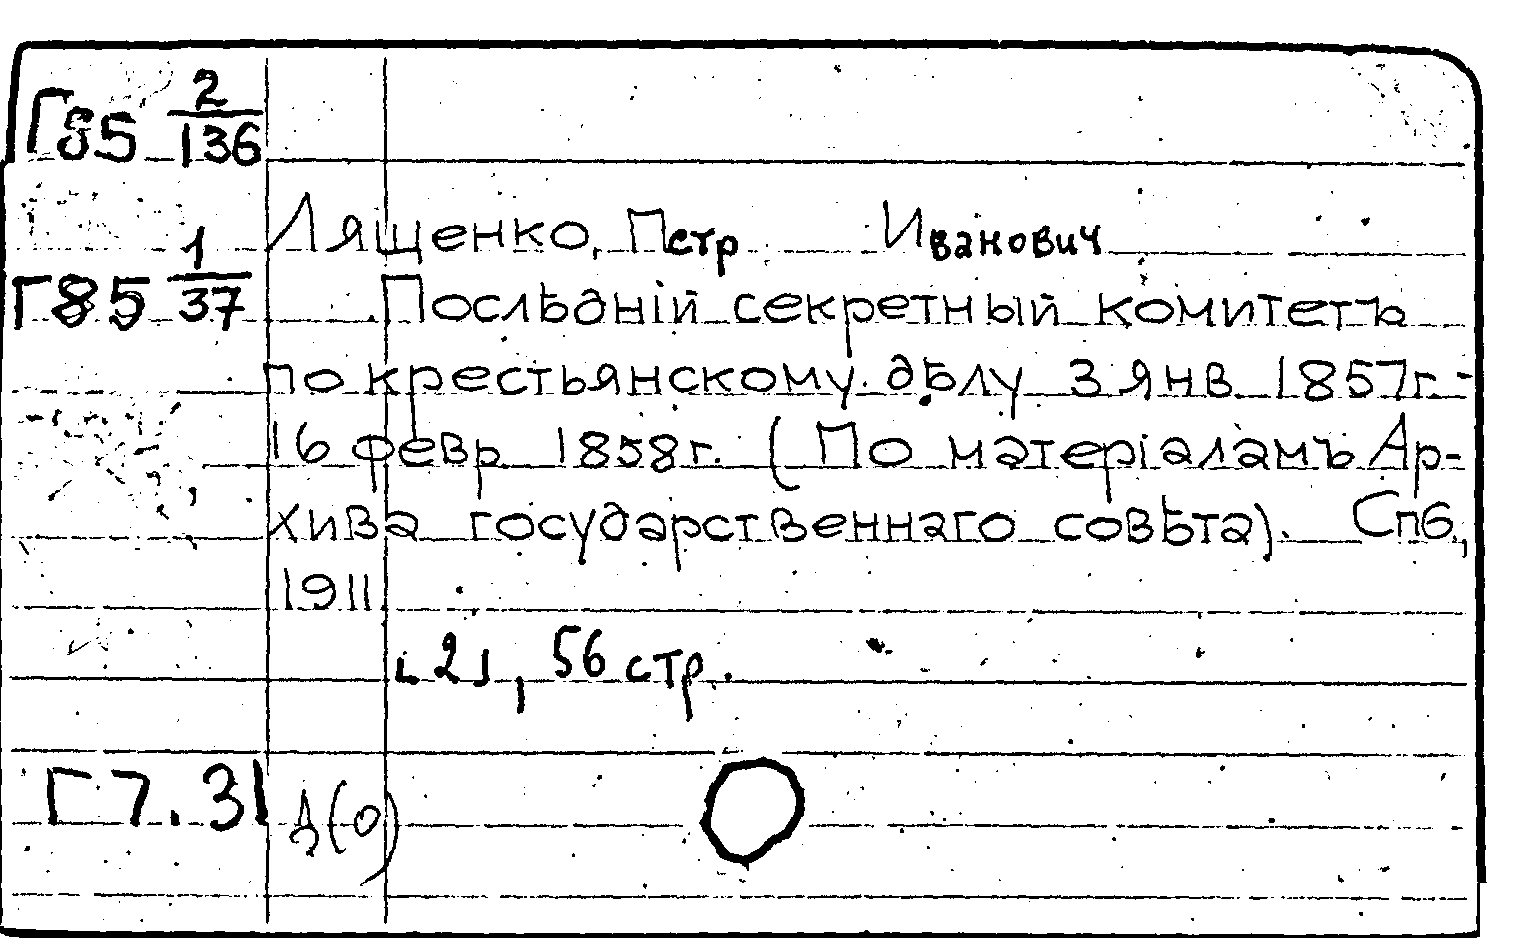 Г85 2/136
Лященко, Петр Иванович
Г85 1/37
Послѣдній секретный комитетъ
по крестьянскому дѣлу 3 янв. 1857г.-
16 февр. 1858г. (По матеріаламъ Ар-
хива государственнаго совѣта). Спб.,
1911
[2], 56 стр.
Г7.31
(0)